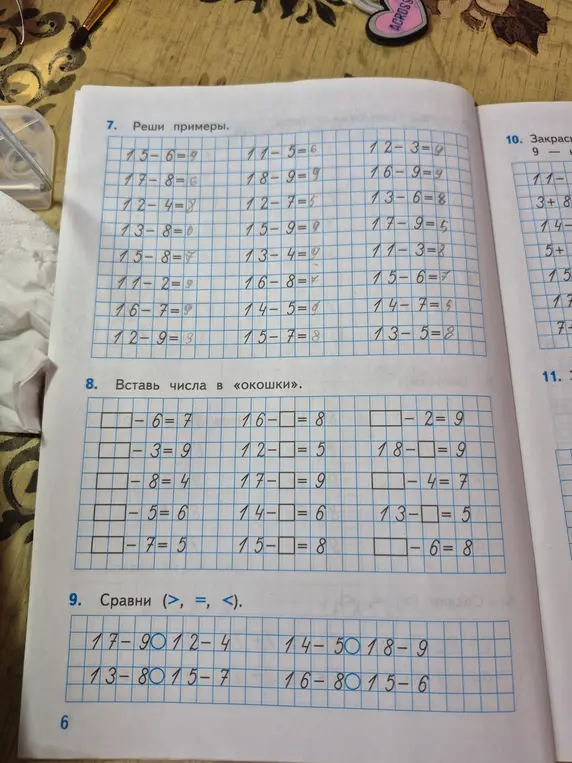 ACROSS
7. Реши примеры.
15-6=9 11-5=6 12-3=9
17-8=6 18-9=9 16-9=9
12-4=8 12-7=5 13-6=8
13-8=6 15-9=9 17-9=5
15-8=7 13-4=9 11-3=8
11-2=9 16-8= 15-6=7
16-7=9 14-5=9 14-7=
12-9=3 15-7=8 13-5=8
8. Вставь числа в «окошки».
□-6=7 16-□=8 □-2=9
□-3=9 12-□=5 18-□=9
□-8=4 17-□=9 □-4=7
□-5=6 14-□=6 13-□=5
□-7=5 15-□=8 □-6=8
9. Сравни (>, =, <).
17-9○12-4 14-5○18-9
13-8○15-7 16-8○15-6
6
10. Закрас
9 —
11-
3+8
14-
5+
15
17
7-
11.